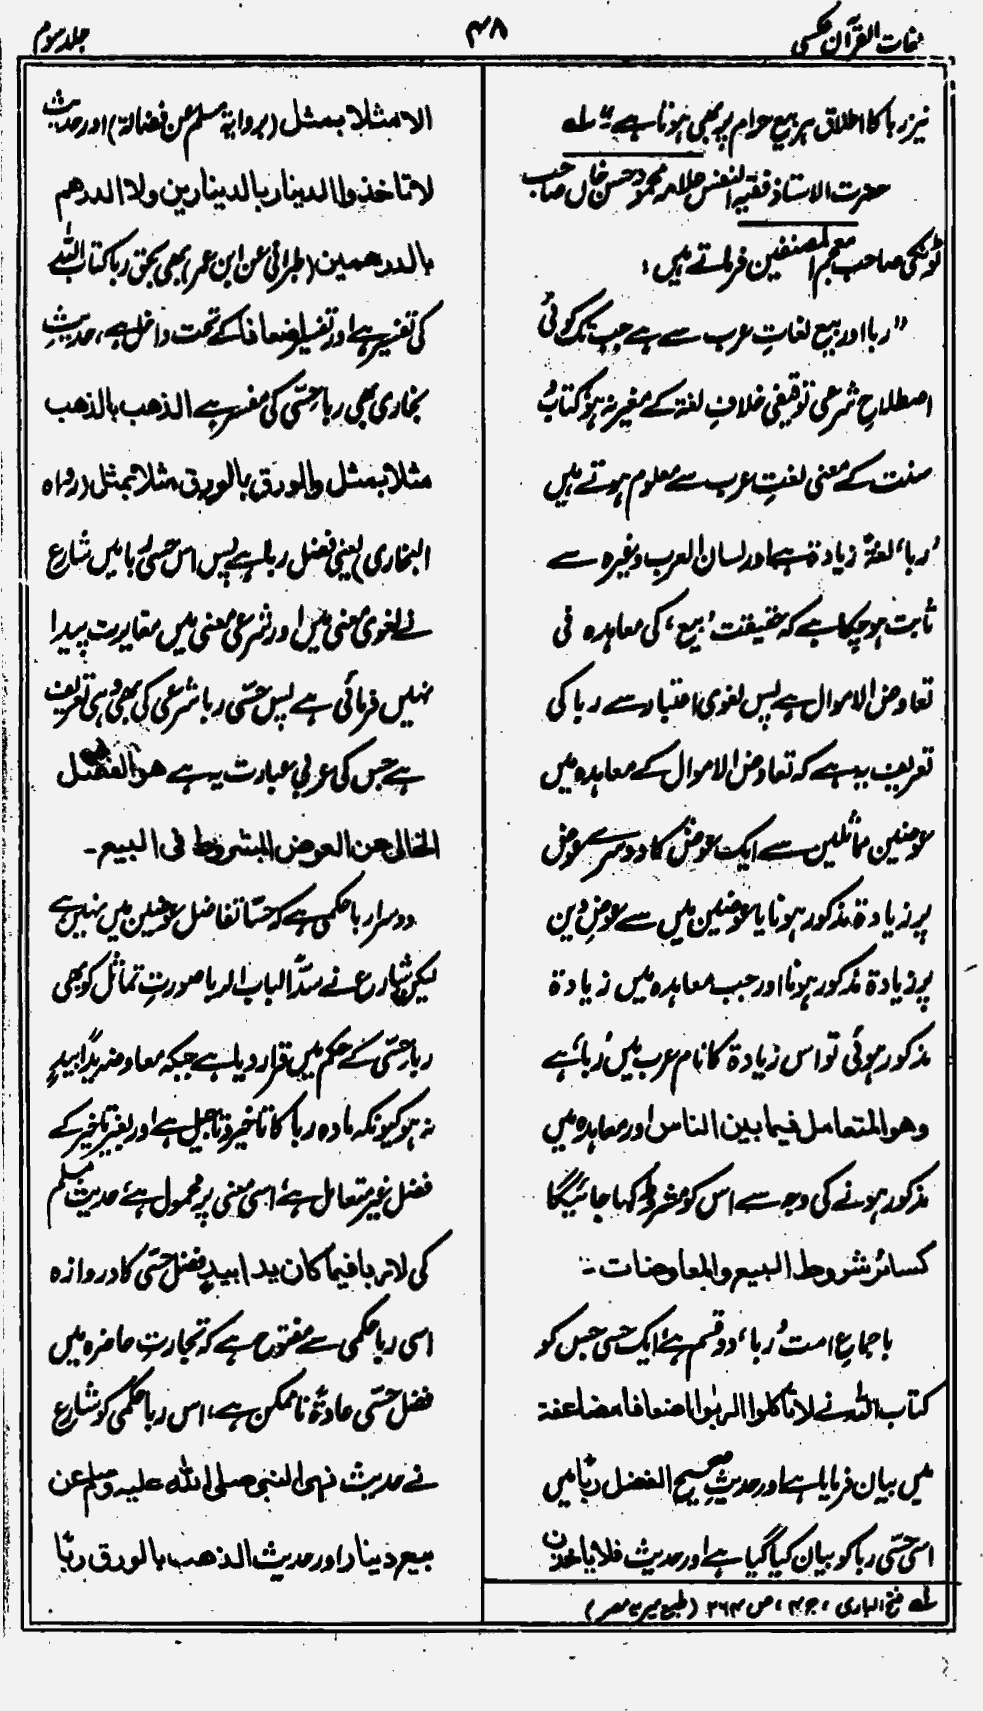 لغات القرآن عکسی
۴۸
جلد سوم
نیز ربا کا اطلاق ہر بیع حرام پر بھی ہوتا ہے" لہ
حضرت الاستاذ فقیہ النفس علامہ محمود حسن خاں صاحب
ٹونکی صاحب معجم المصنفین فرماتے ہیں:
"ربا اور بیع لغاتِ عرب سے ہے جب تک کوئی
اصطلاح شرعی توقیفی خلافِ لغۃ کے مغیر نہ ہو کتاب و
سنت کے معنی لغتِ عرب سے معلوم ہوتے ہیں
'ربا' لغۃً زیادۃ ہے اور لسان العرب وغیرہ سے
ثابت ہو چکا ہے کہ حقیقت 'بیع' کی معاہدہ فی
تعاوض الاموال ہے پس لغوی اعتبار سے ربا کی
تعریف یہ ہے کہ تعاوض الاموال کے معاہدہ میں
عوضین مماثلین سے ایک عوض کا دوسرے عوض
پر زیادۃ مذکور ہونا یا عوضین میں سے عوضِ دین
پر زیادۃ مذکور ہونا اور جب معاہدہ میں زیادۃ
مذکور ہوئی تو اس زیادۃ کا نام عرب میں 'ربا' ہے
وھو المتعامل فیما بین الناس اور معاہدہ میں
مذکور ہونے کی وجہ سے اس کو مشروط کہا جائیگا
کسائر شروط البیع والمعاوضات :-
باجماعِ امت 'ربا' دو قسم ہے ایک حسی جس کو
کتاب اللہ نے لا تاکلوا الربوا اضعافا مضاعفۃ
میں بیان فرمایا ہے اور حدیثِ صحیح الفضل ربًا میں
اسی حسّی ربا کو بیان کیا گیا ہے اور حدیث فلا یاخذن
لہ فتح الباری، ج ۴، ص ۲۶۴ (طبع میریہ مصر)
الا مثلا بمثل (بروایۃ مسلم عن فضالۃ) اور حدیث
لا تاخذوا الدینار بالدینارین ولا الدرھم
بالدرھمین (طبرانی عن ابن عمر) بھی بحق ربا کتاب اللہ
کی تفسیر ہے اور تفسیر اضعافا کے تحت داخل ہے، حدیثِ
بخاری بھی ربا حسّی کی مفسر ہے الذھب بالذھب
مثلا بمثل والورق بالورق مثلا بمثل (رواہ
البخاری) یعنی فضل ربا ہے پس اس حسی ربا میں شارع
نے لغوی معنی میں اور شرعی معنی میں مغایرت پیدا
نہیں فرمائی ہے پس حسّی ربا شرعی کی بھی وہی تعریف
ہے جس کی عربی عبارت یہ ہے ھو الفضل
الخالی عن العوض المشروط فی البیع۔
دوسرا ربا حکمی ہے کہ حسًّا تفاضل عوضین میں نہیں ہے
لیکن شارع نے سدًّا لباب الربا صورتِ تماثل کو بھی
ربا حسّی کے حکم میں قرار دیا ہے جبکہ معاوضہ یدًا بیدٍ
نہ ہو کیونکہ مادہ ربا کا تاخیر و تاجیل ہے اور بغیر تاخیر کے
فضل غیر متعامل ہے، اسی معنی پر محمول ہے، حدیث مسلم
کی لا ربا فیما کان یدا بیدٍ فضل حسّی کا دروازہ
اسی ربا حکمی سے مفتوح ہے کہ تجارتِ حاضرہ میں
فضل حسّی عادۃً نا ممکن ہے، اس ربا حکمی کو شارع
نے حدیث نہی النبی صلی اللہ علیہ وسلم عن
بیع دینار اور حدیث الذھب بالورق ربًا